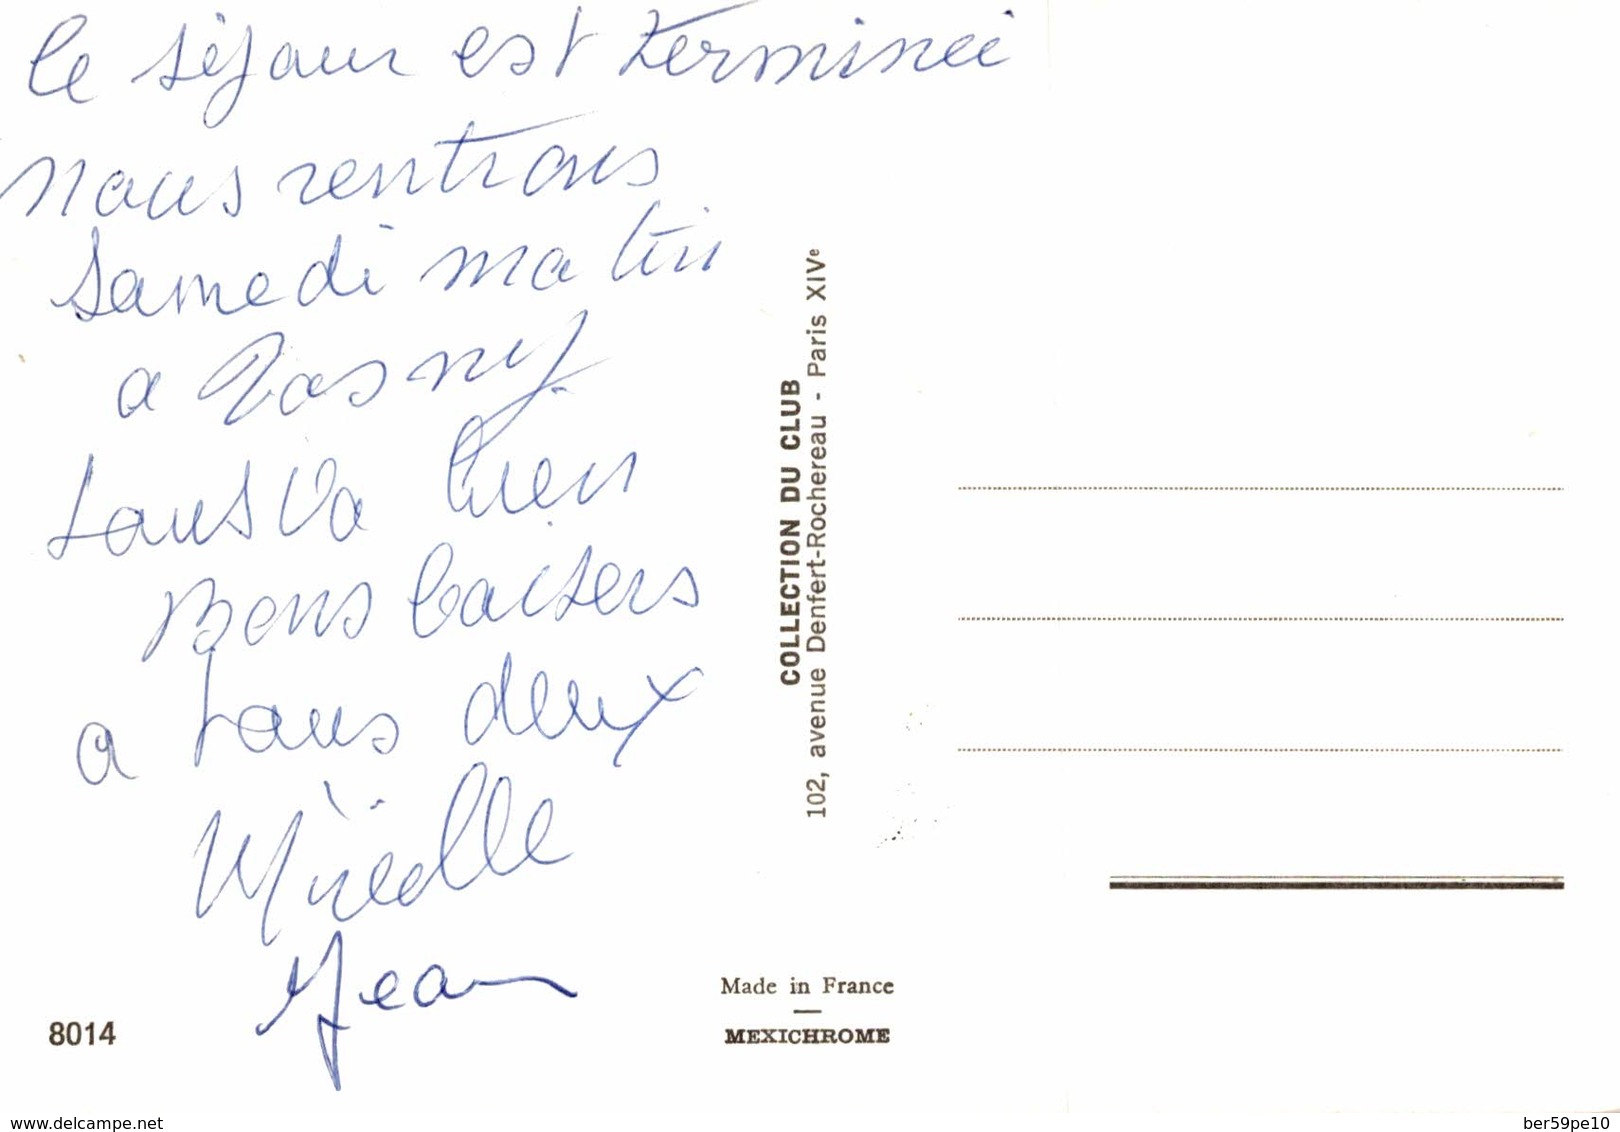 le séjour est terminée
nous rentrons
samedi matin
a Rosny
tous va bien
Bons baisers
a tous deux
Mireille
Jean
8014
COLLECTION DU CLUB
102, avenue Denfert-Rochereau - Paris XIVe
Made in France
MEXICHROME
www.delcampe.net
ber59pe10